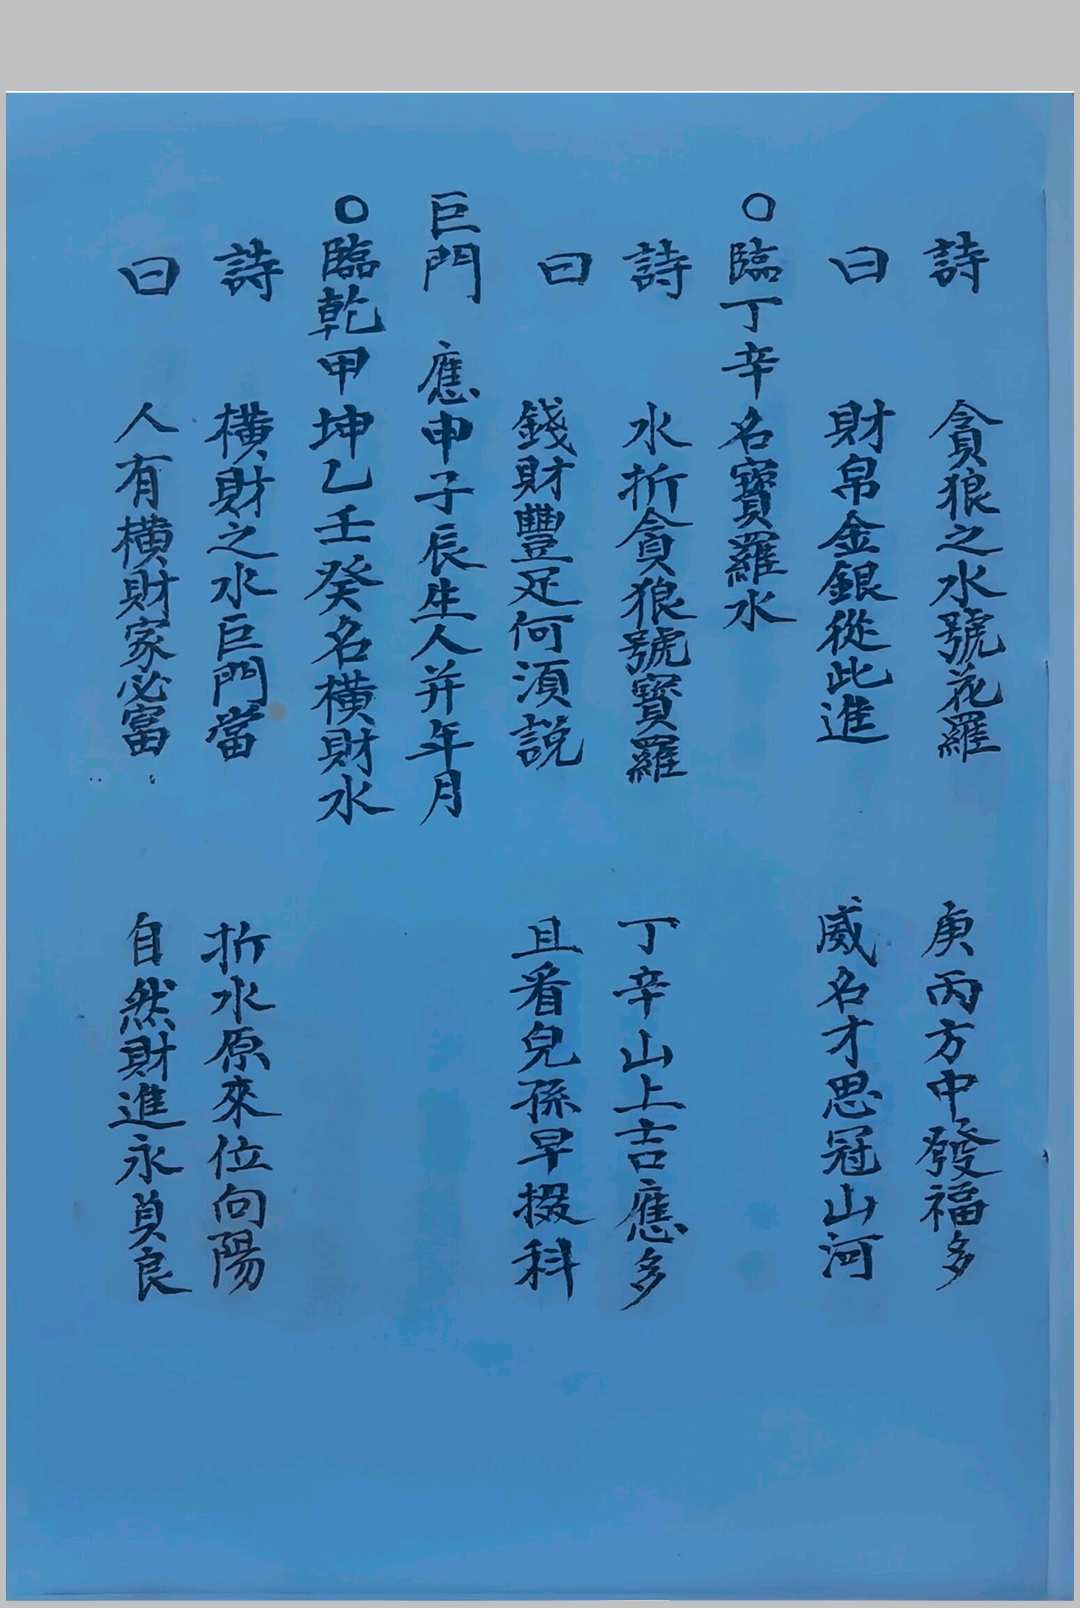 詩 貪狼之水號花羅 庚丙方中發福多
曰 財帛金銀從此進 威名才思冠山河
○臨丁辛名寶羅水
詩 水折貪狼號寶羅 丁辛山上吉應多
曰 錢財豐足何須説 且看兒孫早掇科
巨門 應申子辰生人并年月
○臨乾甲坤乙壬癸名橫財水
詩 橫財之水巨門當 折水原來位向陽
曰 人有橫財家必富 自然財進永負良